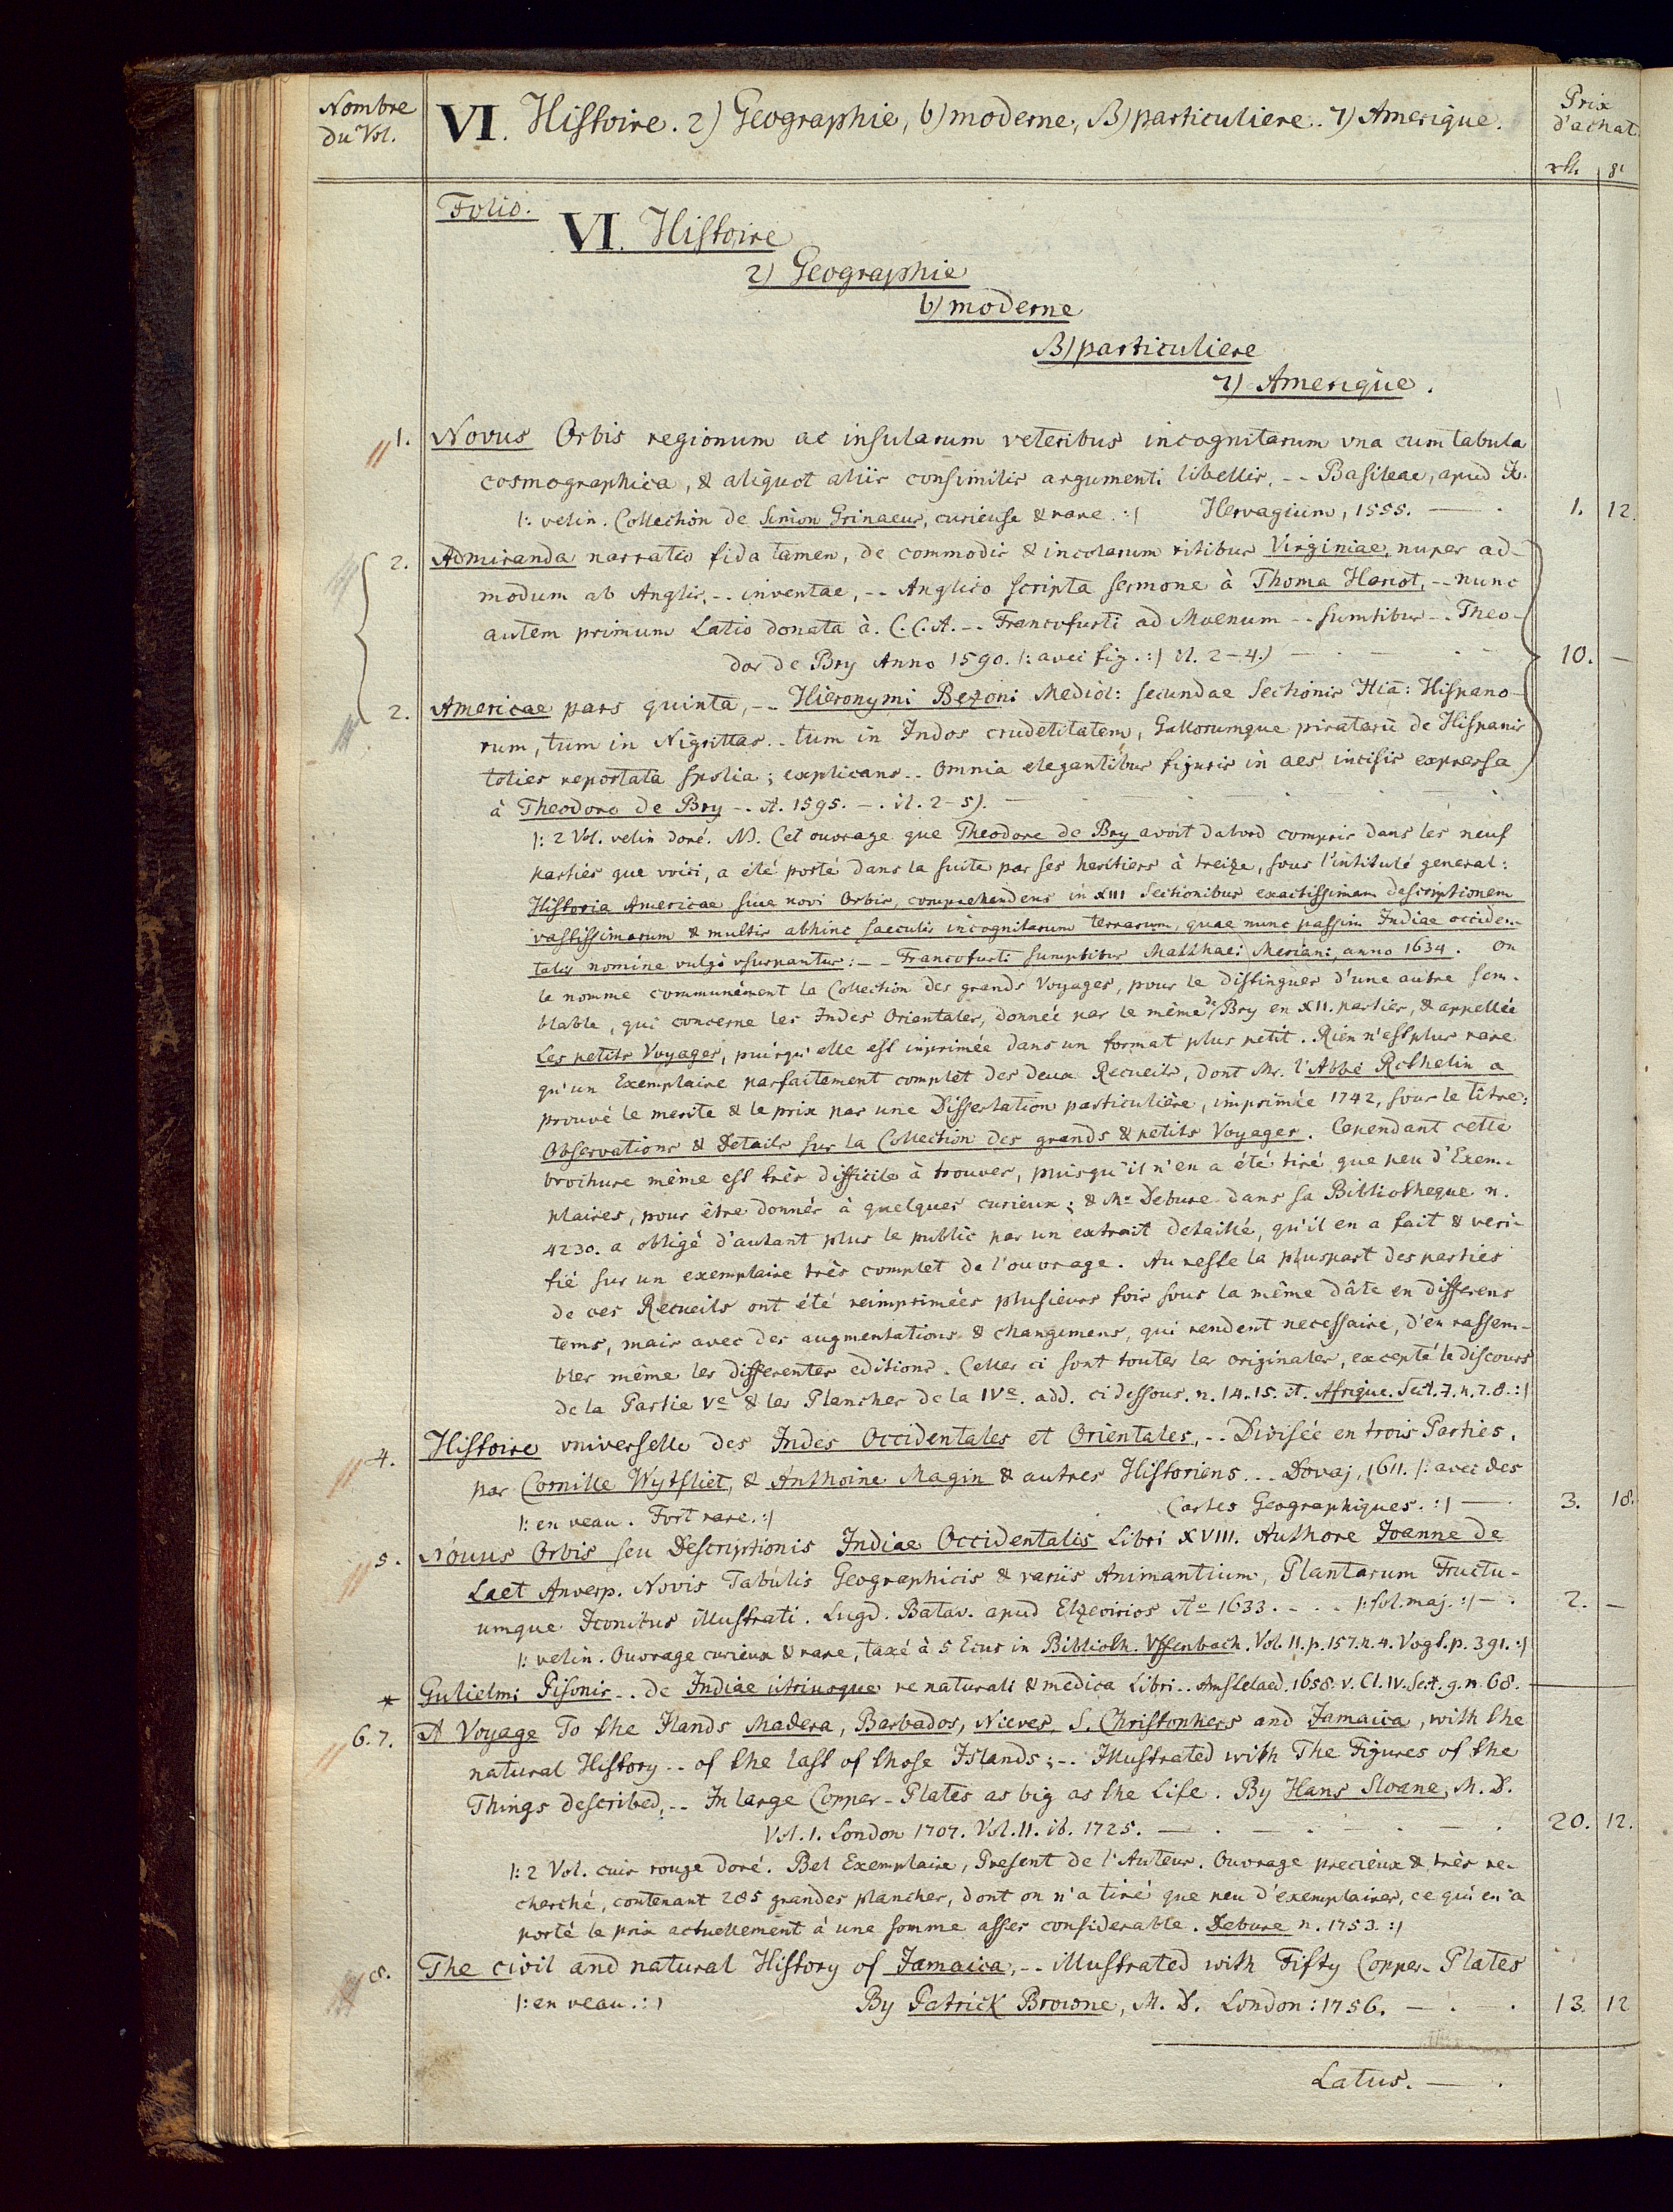 Nombre
du Vol.
VI. Histoire. 2) Geographie, b) moderne, B) particuliere. 7) Amerique.
Prix
d'achat.
rth. gl
Folio.
VI. Histoire
2) Geographie
b) moderne
B) particuliere
7) Amerique.
1. Novus Orbis regionum ac insularum veteribus incognitarum vna cum tabula
cosmographica, & aliquot aliis consimilis argumenti libellis, -- Basileae, apud
|: velin. Collection de Simon Grinaeus, curieuse & rare. :| Hervagium, 1555. — . 1. 12.
2. Admiranda narratio fida tamen, de commodis & incolarum ritibus Virginiae, nuper ad-
modum ab Anglis, -- inventae, -- Anglico scripta sermone à Thoma Hariot, -- nunc
autem primum Latio donata à. C.C.A. -- Francofurti ad Moenum -- sumtibus -- Theo-
dor de Bry Anno 1590. |: avec fig. :| it. 2-4.) — 10. —
2. Americae pars quinta, -- Hieronymi Bezoni Mediol: secundae Sectionis Hia: Hispano-
rum, tum in Nigrittas -- tum in Indos crudelitatem, Gallorumque piratarū de Hispanis
toties reportata spolia; explicans -- Omnia elegantibus figuris in aes incisis expressa
à Theodoro de Bry -- A. 1595. — . it. 2-5).
|: 2 Vol. velin doré. NB. Cet ouvrage que Theodore de Bry avoit dabord compris dans les neuf
parties que voici, a été porté dans la suite par ses heritiers à treize, sous l'intitulé general:
Historia Americae sive novi Orbis, comprehendens in XIII Sectionibus exactissimam descriptionem
vastissimarum & multis abhinc saeculis incognitarum terrarum, quae nunc passim Indiae occiden-
talis nomine vulgò vsurpantur: -- Francofurti sumptibus Matthaei Meriani, anno 1634. On
le nomme communément la Collection des grands Voyages, pour le distinguer d'une autre sem-
blable, qui concerne les Indes Orientales, donnée par le même de Bry en XII. parties, & appellée
Les petits Voyages, puisqu'elle est imprimée dans un format plus petit. Rien n'est plus rare
qu'un Exemplaire parfaitement complet des deux Recueils, dont Mr. l'Abbé Rothelin a
prouvé le merite & le prix par une Dissertation particulière, imprimée 1742, sous le titre:
Observations & Details sur la Collection des grands & petits Voyages. Cependant cette
brochure même est très difficile à trouver, puisqu'il n'en a été tiré que peu d'Exem-
plaires, pour être donnés à quelques curieux; & Mr Debure dans sa Bibliotheque n.
4230. a obligé d'autant plus le public par un extrait detaillé, qu'il en a fait & veri-
fié sur un exemplaire très complet de l'ouvrage. Au reste la pluspart des parties
de ces Recueils ont été reimprimées plusieurs fois sous la même dâte en differens
tems, mais avec des augmentations & changemens, qui rendent necessaire, d'en rassem-
bler même les differentes editions. Celles ci sont toutes les originales, excepté le discours
de la Partie Ve & les Planches de la IVe. add. ci dessous. n. 14. 15. it. Afrique. Sect. 7. n. 7. 8. :|
4. Histoire vniverselle des Indes Occidentales et Orientales, -- Divisée en trois Parties,
par Cornille Wytfliet, & Anthoine Magin & autres Historiens -- Dovaj, 1611. |: avec des
|: en veau. Fort rare. :| Cartes Geographiques. :| — 3. 18.
5. Nouus Orbis seu Descriptionis Indiae Occidentalis Libri XVIII. Authore Joanne de
Laet Anverp. Novis Tabulis Geographicis & variis Animantium, Plantarum Fructu-
umque Iconibus illustrati. Lugd. Batav. apud Elzevirios Ao 1633. -- |: fol. maj. :| — . 2. —
|: velin. Ouvrage curieux & rare, taxé à 5 Ecus in Biblioth. Vffenbach. Vol. II. p. 157. n. 4. Vogt. p. 391. :|
* Gulielmi Pisonis -- de Indiae utriusque re naturali & medica Libri -- Amstelaed. 1658. v. Cl. IV. Sect. 9. n. 68. —
6. 7. A Voyage To the Ilands Madera, Barbados, Nieves, S. Christophers and Jamaica, with the
natural History -- of the last of those Islands; -- Illustrated with The Figures of the
Things described, -- In large Copper-Plates as big as the Life. By Hans Sloane, M. D.
Vol. I. London 1707. Vol. II. ib. 1725. — 20. 12.
|: 2 Vol. cuir rouge doré. Bel Exemplaire, Present de l'Auteur. Ouvrage precieux & très re-
cherché, contenant 285 grandes planches, dont on n'a tiré que peu d'exemplaires, ce qui en a
porté le prix actuellement à une somme asses considerable. Debure n. 1753. :|
8. The civil and natural History of Jamaica, -- illustrated with Fifty Copper-Plates
|: en veau. :| By Patrick Browne, M. D. London: 1756. — . 13. 12
Latus. — .